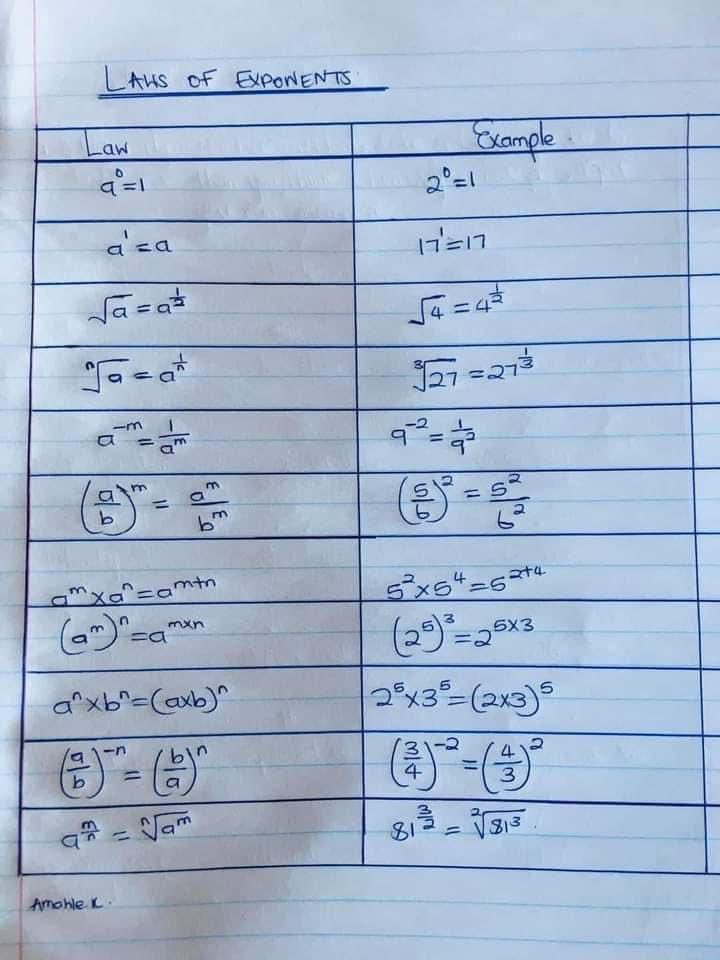 LAWS OF EXPONENTS
Law Example.
a⁰=1 2⁰=1
a¹=a 17¹=17
√a = a^(1/2) √4 = 4^(1/2)
ⁿ√a = a^(1/n) ³√27 = 27^(1/3)
a^(-m) = 1/a^m 9^(-2) = 1/9²
(a/b)^m = a^m/b^m (5/6)² = 5²/6²
a^m × a^n = a^(m+n) 5² × 5⁴ = 5^(2+4)
(a^m)^n = a^(m×n) (2⁵)³ = 2^(5×3)
aⁿ × bⁿ = (a×b)ⁿ 2⁵ × 3⁵ = (2×3)⁵
(a/b)^(-n) = (b/a)^n (3/4)^(-2) = (4/3)²
a^(m/n) = ⁿ√a^m 81^(3/2) = ²√81³.
Amohle K.